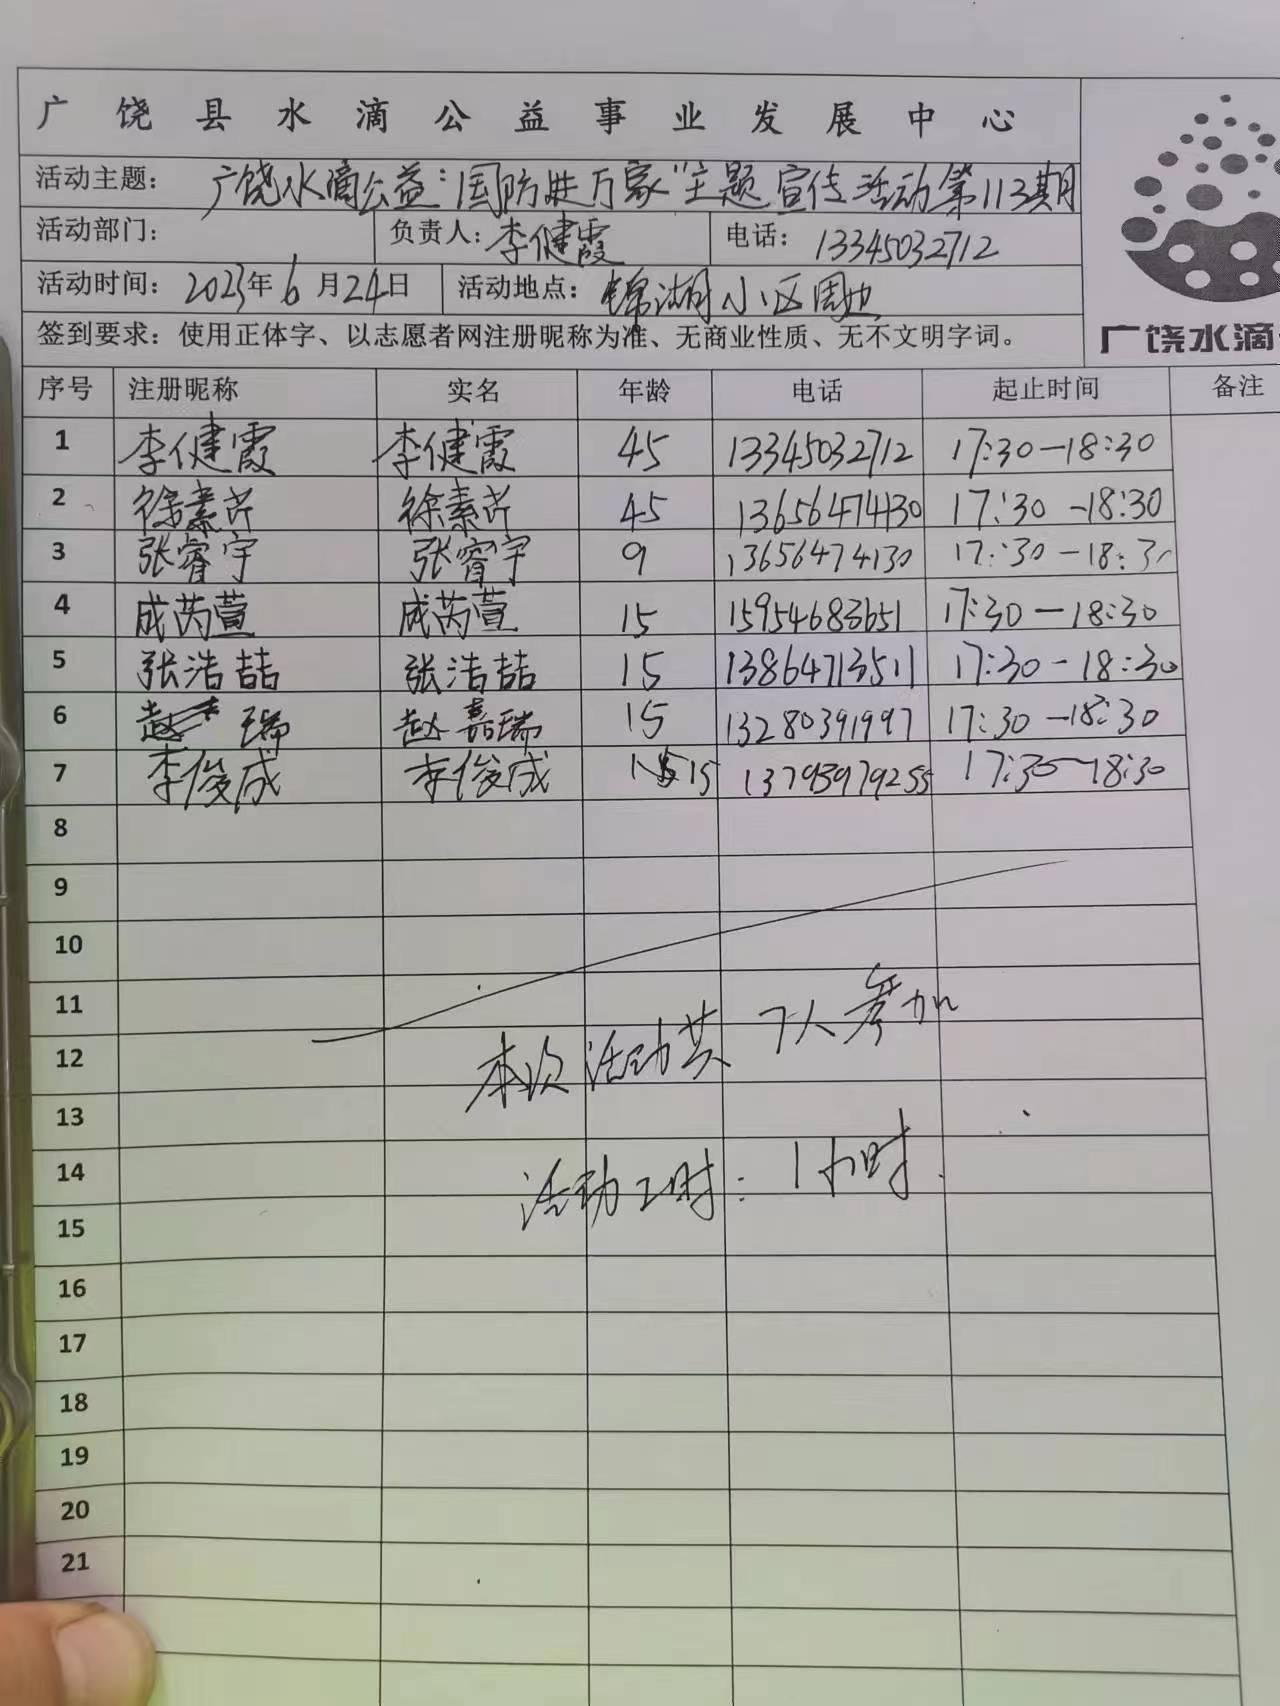 广饶县水滴公益事业发展中心
活动主题： 广饶水滴公益："国防进万家"主题宣传活动第113期
活动部门： 负责人：李健霞 电话：13345032712
活动时间：2023年6月24日 活动地点：锦湖小区周边
签到要求：使用正体字、以志愿者网注册昵称为准、无商业性质、无不文明字词。
广饶水滴
序号 注册昵称 实名 年龄 电话 起止时间 备注
1 李健霞 李健霞 45 13345032712 17:30-18:30
2 徐素芹 徐素芹 45 13656474130 17:30-18:30
3 张睿宇 张睿宇 9 13656474130 17:30-18:30
4 成芮萱 成芮萱 15 15954683651 17:30-18:30
5 张浩喆 张浩喆 15 13864713511 17:30-18:30
6 赵 瑞 赵嘉瑞 15 13280391997 17:30-18:30
7 李俊成 李俊成 15 13793979255 17:30-18:30
8
9
10
11
本次活动共7人参加
12
13
14
活动工时：1小时.
15
16
17
18
19
20
21